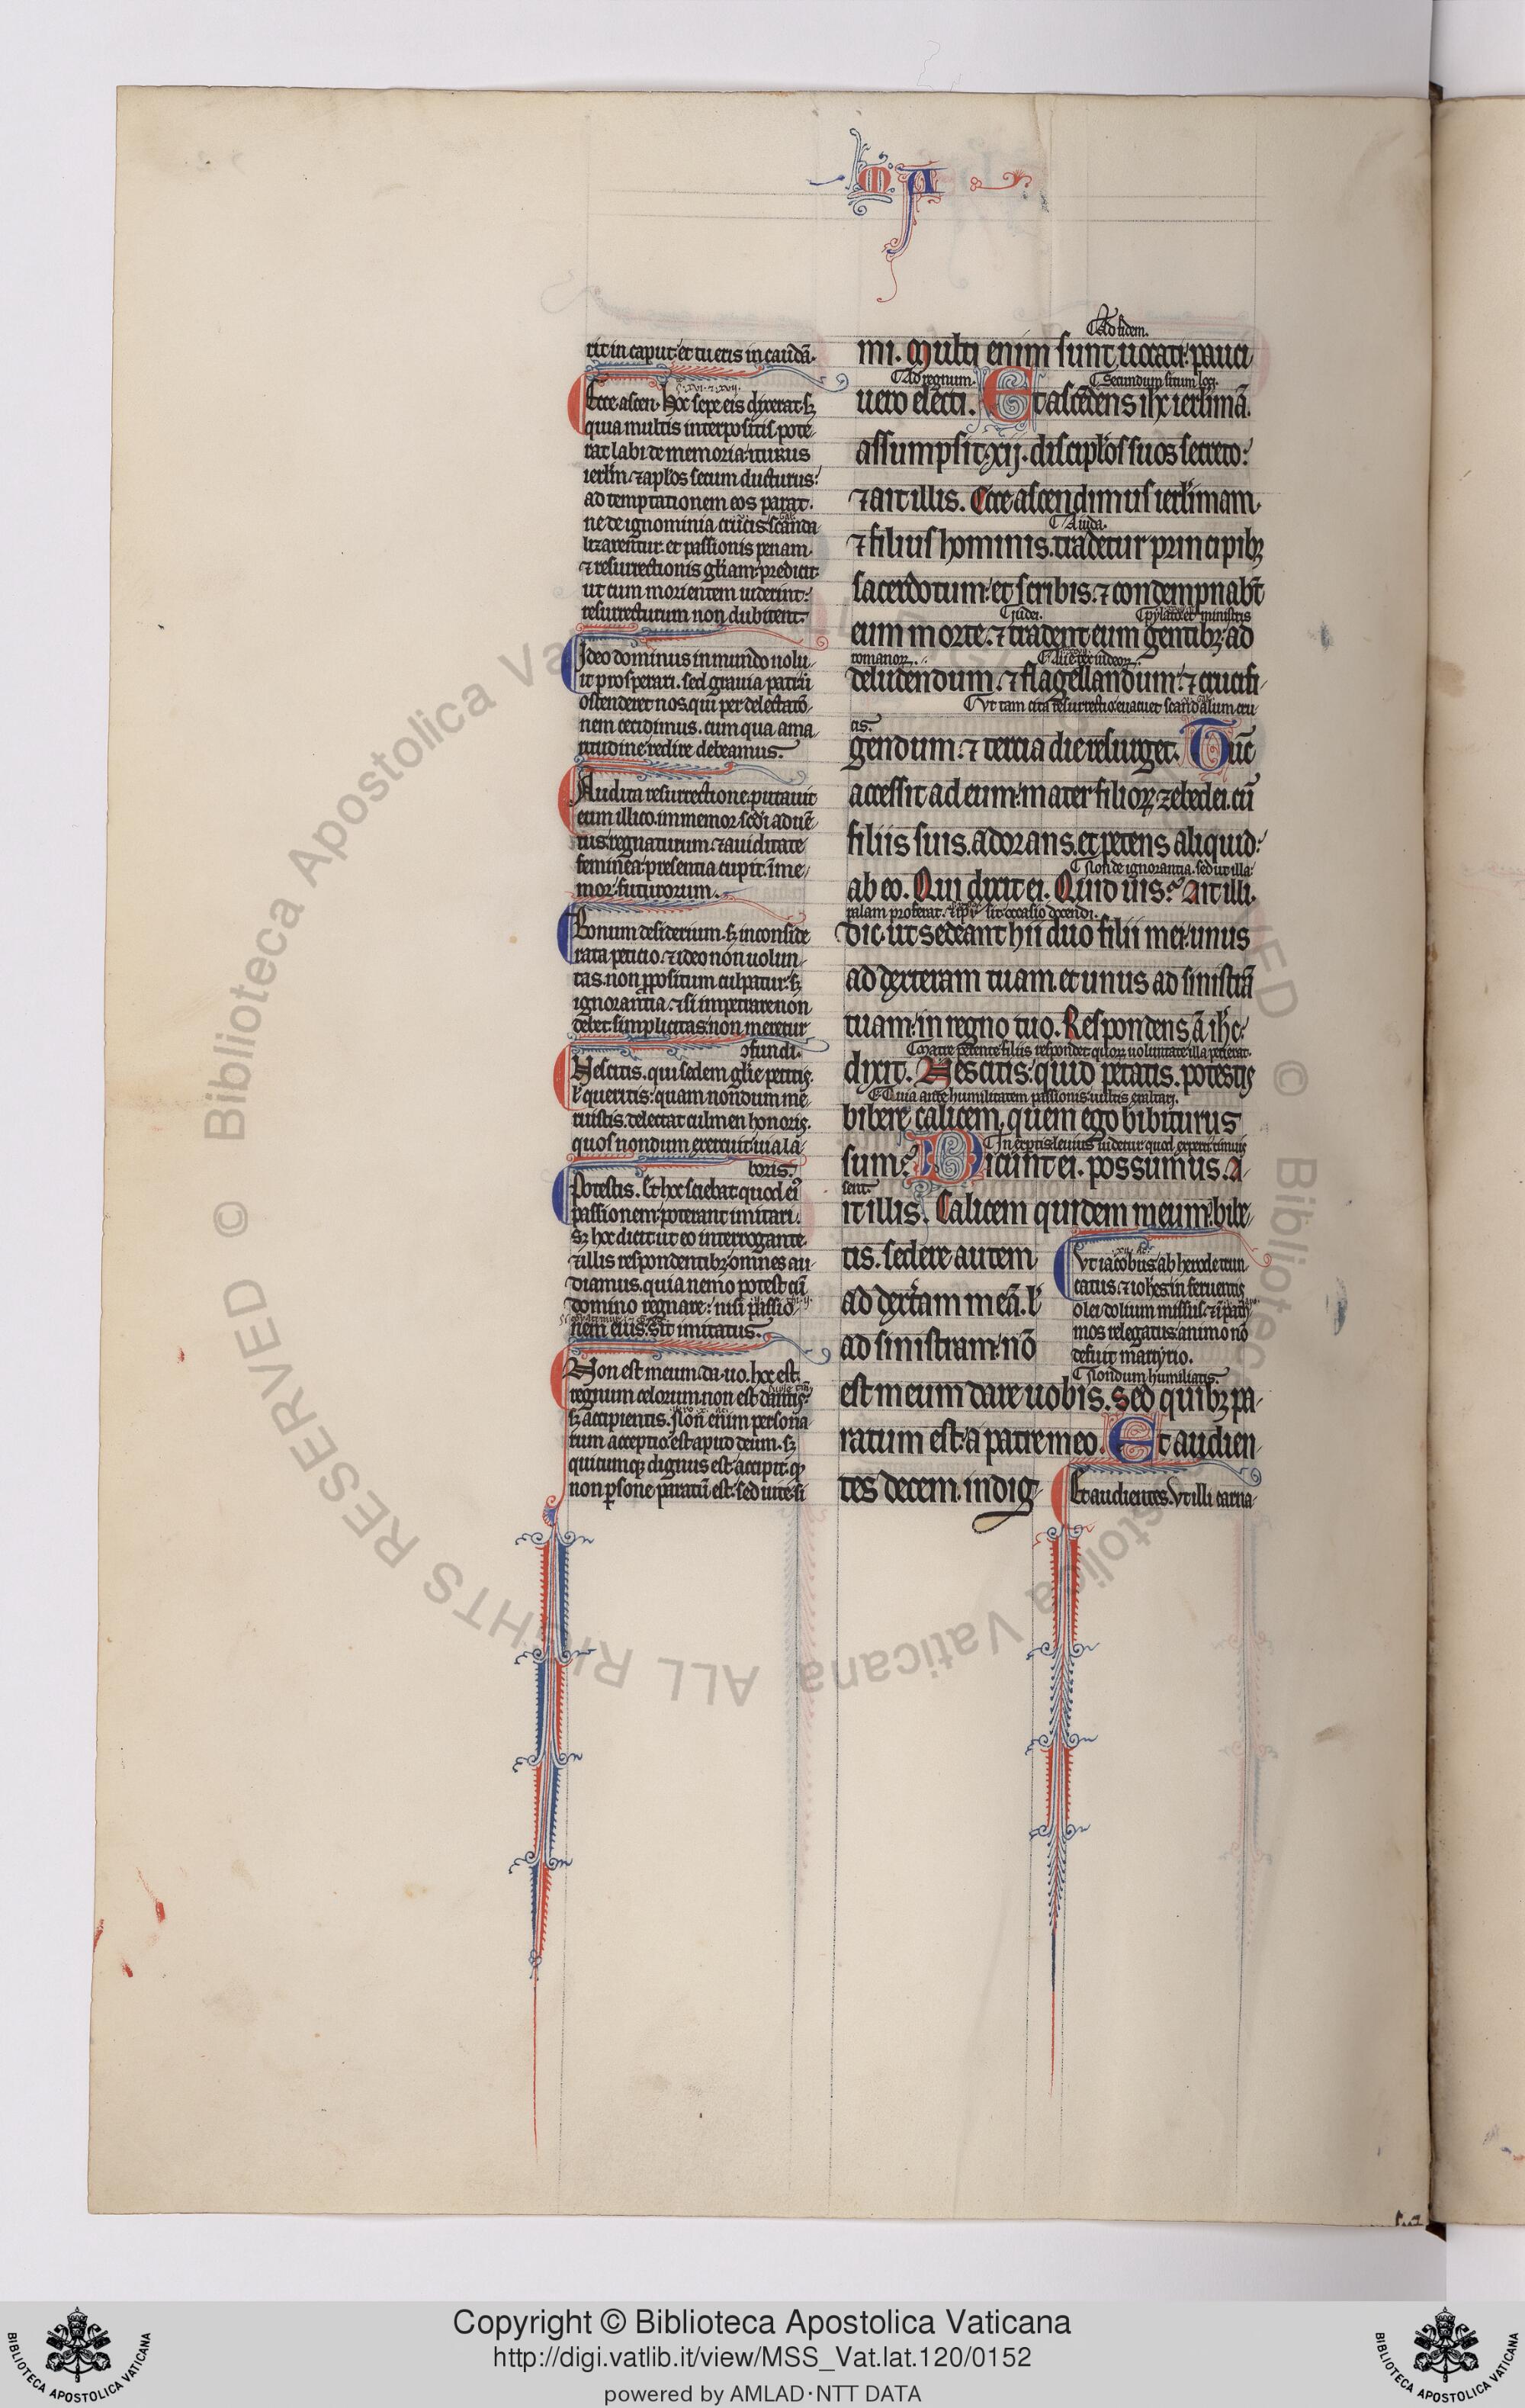 M A
rit in caput: et tu eris in caudā.
Ecce ascen. Hoc sepe eis dixerat. sꝫ
quia multis interpositis pote
rat labi de memoria: iturus
ierl'm. ⁊ apl'os secum ducturus:
ad temptationem eos parat.
ne de ignominia crucis scanda
lizarentur. et passionis penam.
⁊ resurrectionis gl'iam: predicit.
ut cum morientem uiderint:
resurrecturum non dubitent.
Ideo dominus in mundo nolu
it prosperari. sed grauia pati: ut
ostenderet nos. qui per delectatō
nem cecidimus. cum qua ama
ritudine redire debeamus.
Audita resurrectione. putauit
eum illico. immemor sc'di aduē
tus: regnaturum. ⁊ auiditate
feminea: presentia cupit. īme
mor: futurorum.
Bonum desiderium. sꝫ inconside
rata peticio. ⁊ ideo non uolun
tas. non propositum culpatur: sꝫ
ignorantia. ⁊ si impetrare non
debet: simplicitas. non meretur
ɔfundi.
Nescitis. qui sedem gl'ie petitis.
l' queritis: quam nondum me
ruistis. delectat culmen honoris.
quos nondum exercuit uia la
boris.
Potestis. Et hoc sciebat: quod ei'
passionem: poterant imitari.
sꝫ hoc dicit: ut eo interrogante.
⁊ illis respondentibꝫ: omnes au
diamus. quia nemo potest cū
domino regnare: nisi passio
nem eius: sit imitatus.
Non est meum. da. uo. hoc est.
regnum celorum. non est dantis:
sꝫ accipientis. Non enim persona
rum acceptio est apud deum. sꝫ
quicumqꝫ dignus est: accipit. qꝫ
non p̱sone paratū est: sed uite. si
Ad fidem.
mi. Multi enim sunt uocati: pauci
Ad regnum. Secundum situm loci.
uero electi. Et ascēdens ihc ierl'imā.
assumpsit. xij. discipl'os suos secreto:
⁊ ait illis. Ecce ascendimus ierl'imam.
A iuda.
⁊ filius hominis. tradetur principibꝫ
sacerdotum: et scribis. ⁊ condempnabt̄
Iudei. Pylato et ministris
eum morte. ⁊ tradent eum gentibꝫ: ad
romanoꝝ.
deludendum. ⁊ flagellandum: ⁊ crucifi
Vt tam cita resurrectio: euacuet scandalum cru
cis.
gendum. ⁊ tercia die resurget. Tūc
accessit ad eum: mater filioꝝ zebedei. cū
filiis suis. adorans. et petens aliquid:
Non de ignorantia. sed ut illa:
ab eo. Qui dixit ei. Quid uis? Ait illi.
palam proferat. sit occasio docendi.
Dic. ut sedeant hii duo filii mei: unus
ad dexteram tuam. et unus ad sinistrā
tuam: in regno tuo. Respondens ā ih'c:
Matre petente filiis respondet: quoꝝ uoluntate illa petierat.
dixit. Nescitis: quid petatis. potestis
Quia ante humilitatem passionis: uultis exaltari.
bibere calicem. quem ego bibiturus
Inexptis leuius uidetur: quod experti timuis
sum? Dicunt ei. possumus. A
sent.
it illis. Calicem quidem meum: bibe
tis. sedere autem
ad dext'am meā. l'
ad sinistram: nō
Vt iacobus: ab herode trun
catus: ⁊ ioh'es. in feruentis
olei dolium missus. ⁊ ī path
mos relegatus: animo nō
defuit martyrio.
Nondum humiliatis.
est meum dare uobis. Sed quibꝫ pa
ratum est: a patre meo. Et audien
tes decem. indig
Et audientes. Vt illi carna
© Biblioteca Apostolica Vaticana ALL RIGHTS RESERVED
Copyright © Biblioteca Apostolica Vaticana
http://digi.vatlib.it/view/MSS_Vat.lat.120/0152
powered by AMLAD·NTT DATA
BIBLIOTECA APOSTOLICA VATICANA
BIBLIOTECA APOSTOLICA VATICANA